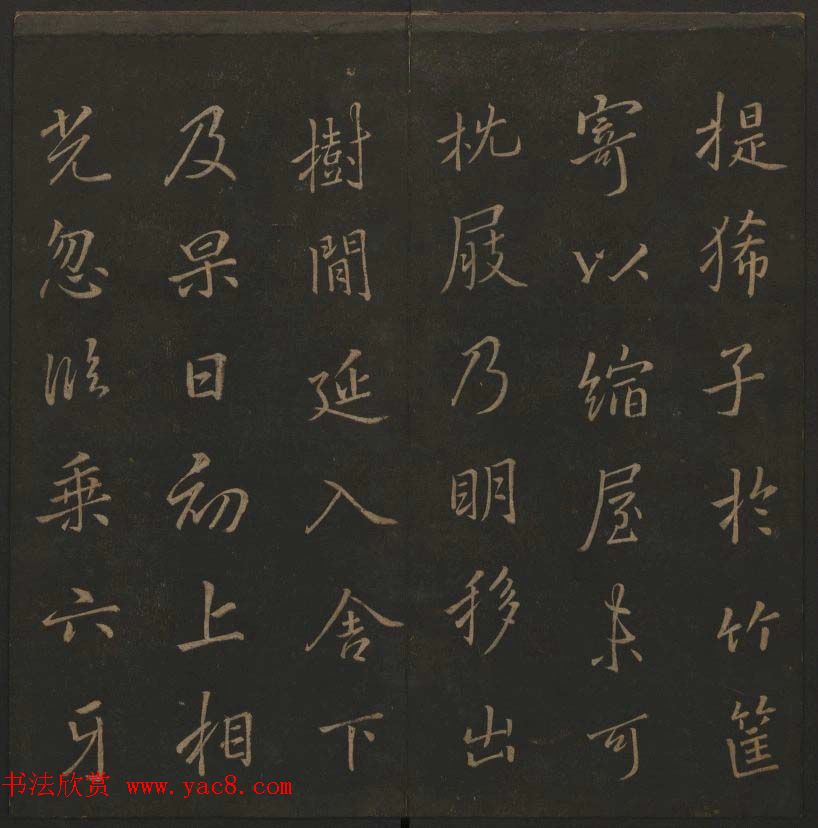 提狶子於竹筐
寄以縮屋未可
枕屐乃眀移出
樹間延入舍下
及杲日初上相
光忽臨乗六牙
书法欣赏 www.yac8.com